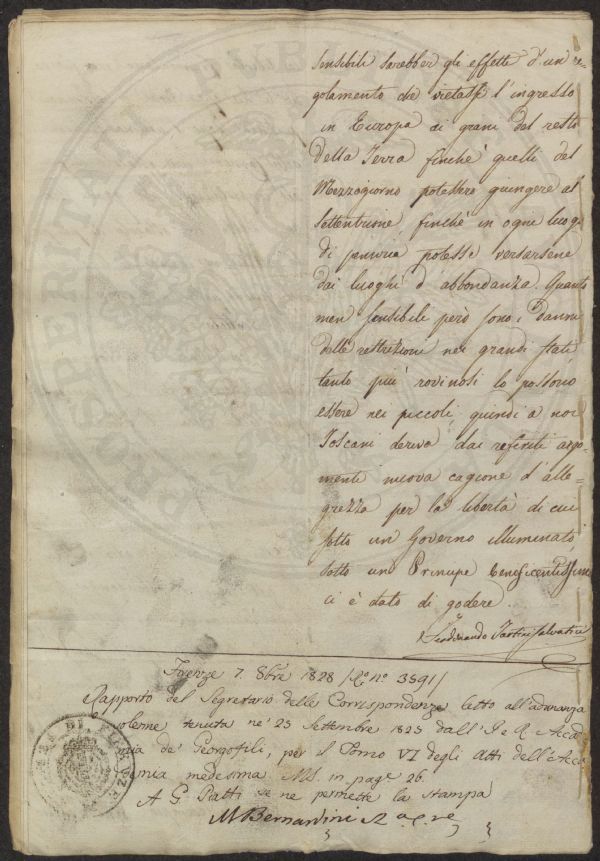 sensibili sarebber gli effetti d'un re=
golamento che vietasse l'ingresso
in Europa ai grani del resto
della Terra finchè quelli del
Mezzogiorno potessero giungere al
settentrione, finchè in ogni luogo
di penuria potesse versarsene
dai luoghi d'abbondanza. Quanto
men sensibili però sono i danni
delle restrizioni nei grandi stati
tanto più rovinosi lo possono
essere nei piccoli, quindi a noi
Toscani deriva dai referiti argo-
menti nuova cagione d'alle=
grezza per la libertà di cui
sotto un Governo illuminato,
sotto un Principe beneficentissimo
ci è dato di godere.
Ferdinando Tartini Salvatici
Firenze 7. 8bre 1828 /R.o n.o 3591/
Rapporto del Segretario delle Corrispondenze letto all'adunanza
solenne tenuta ne' 25 Settembre 1825 dall'I. e R. Accad
mia de' Georgofili, per il Tomo VI degli Atti dell'Acca
demia medesima MS. in pag.e 26.
A G. Piatti se ne permette la stampa
M Bernardini